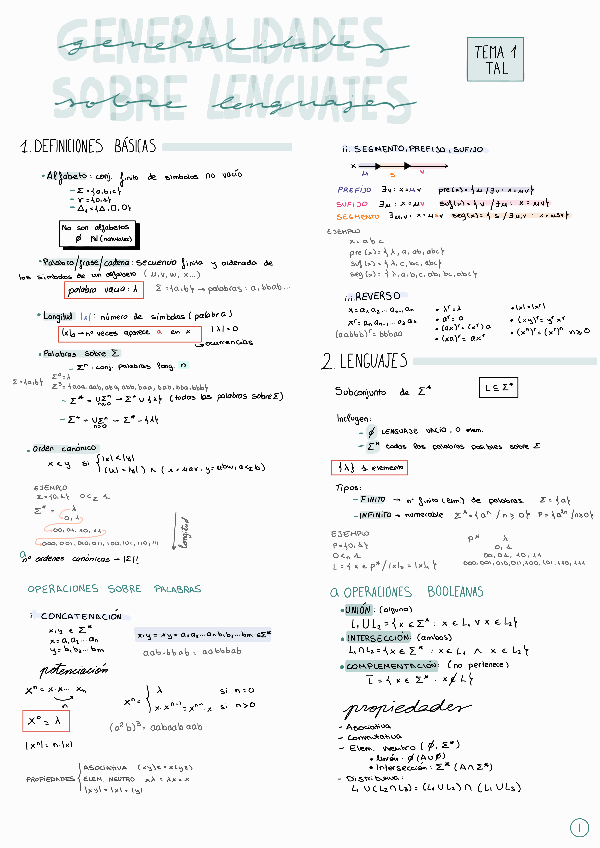 generalidades
sobre lenguajes
TEMA 1
TAL
1. DEFINICIONES BÁSICAS
• Alfabeto: conj. finito de símbolos no vacío
– Σ = {a,b,c}
– Γ = {0,1}
No son alfabetos
∅ ℕ (naturales)
• Palabra/frase/cadena: secuencia finita y ordenada de
los símbolos de un alfabeto (u, v, w, x...)
palabra vacía: λ
Σ = {a,b} → palabras: a, bbab...
• Longitud |x|: número de símbolos (palabra)
|x|a → nº veces aparece a en x
|λ| = 0
ocurrencias
• Palabras sobre Σ
– Σⁿ: conj. palabras long. n
Σ = {a,b}
Σ⁰ = λ
Σ³ = {aaa, aab, aba, abb, baa, bab, bba, bbb}
– Σ* = ∪Σⁿ → Σ⁺ ∪ {λ} (todas las palabras sobre Σ)
n≥0
– Σ⁺ = ∪Σⁿ → Σ* – {λ}
n>0
• Orden canónico
x < y si { |x| < |y|
(|x| = |y|) ∧ (x = uav, y = ubw, a <Σ b)
EJEMPLO
Σ = {0,1} 0 <Σ 1
Σ* = λ
0, 1
00, 01, 10, 11
000, 001, 010, 011, 100, 101, 110, 111
longitud
nº ordenes canónicos → |Σ|!
OPERACIONES SOBRE PALABRAS
i. CONCATENACIÓN
x, y ∈ Σ*
x = a₁a₂...aₙ
y = b₁b₂...bₘ
x·y = xy = a₁a₂...aₙb₁b₂...bₘ ∈ Σ*
aab·bbab = aabbbab
potenciación
xⁿ = x·x... xₙ
n
xⁿ = { λ si n = 0
x·xⁿ⁻¹ = xⁿ⁻¹·x si n > 0
x⁰ = λ
(a²b)³ = aabaabaab
|xⁿ| = n·|x|
PROPIEDADES { ASOCIATIVA (xy)z = x(yz)
ELEM. NEUTRO xλ = λx = x
|xy| = |x| + |y|
ii. SEGMENTO, PREFIJO, SUFIJO
x
u s v
PREFIJO ∃v : x = uv pre(x) = {u / ∃v : x = uv}
SUFIJO ∃u : x = uv suf(x) = {v / ∃u : x = uv}
SEGMENTO ∃u,v : x = usv seg(x) = {s / ∃u,v : x = usv}
EJEMPLO
x = abc
pre(x) = {λ, a, ab, abc}
suf(x) = {λ, c, bc, abc}
seg(x) = {λ, a, b, c, ab, bc, abc}
iii. REVERSO
x = a₁a₂...aₙ₋₁aₙ
xʳ = aₙaₙ₋₁...a₂a₁
(aabbb)ʳ = bbbaa
• λʳ = λ
• aʳ = a
• (ax)ʳ = (xʳ)a
• (xa)ʳ = axʳ
• |x| = |xʳ|
• (xy)ʳ = yʳxʳ
• (xⁿ)ʳ = (xʳ)ⁿ n≥0
2. LENGUAJES
Subconjunto de Σ*
L ⊆ Σ*
Incluyen:
– ∅ LENGUAJE VACÍO, 0 elem.
– Σ* todas las palabras posibles sobre Σ
{λ} 1 elemento
Tipos:
– FINITO → nº finito (elem.) de palabras Σ = {a}
– INFINITO → numerable Σ* = {aⁿ / n ≥ 0} P = {a²ⁿ / n≥0}
EJEMPLO
P = {0,1}
0 < 1
P* λ
0, 1
00, 01, 10, 11
000, 001, 010, 011, 100, 101, 110, 111
a. OPERACIONES BOOLEANAS
• UNIÓN: (alguno)
L₁ ∪ L₂ = {x ∈ Σ* : x ∈ L₁ ∨ x ∈ L₂}
• INTERSECCIÓN: (ambos)
L₁ ∩ L₂ = {x ∈ Σ* : x ∈ L₁ ∧ x ∈ L₂}
• COMPLEMENTACIÓN: (no pertenece)
L̅ = {x ∈ Σ* : x ∉ L}
propiedades
– Asociativa
– Conmutativa
– Elem. neutro (∅, Σ*)
• Unión: ∅ (A∪∅)
• Intersección: Σ* (A∩Σ*)
– Distributiva:
L₁ ∪ (L₂ ∩ L₃) = (L₁ ∪ L₂) ∩ (L₁ ∪ L₃)
1